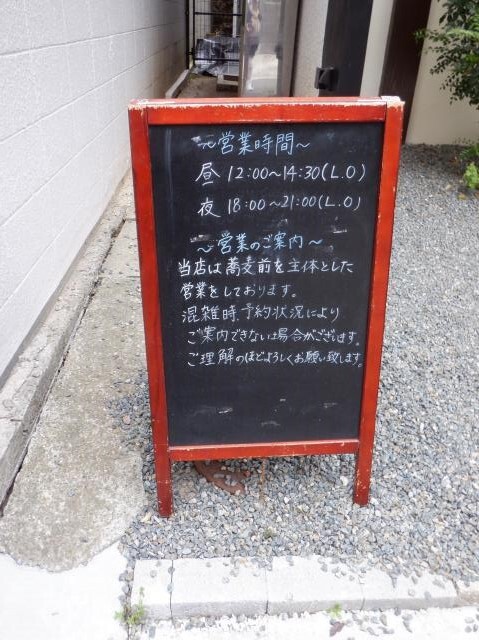 ～営業時間～
昼 12:00～14:30(L.O)
夜 18:00～21:00(L.O)
～営業のご案内～
当店は蕎麦前を主体とした
営業をしております。
混雑時、予約状況により
ご案内できない場合がございます。
ご理解のほどよろしくお願い致します。